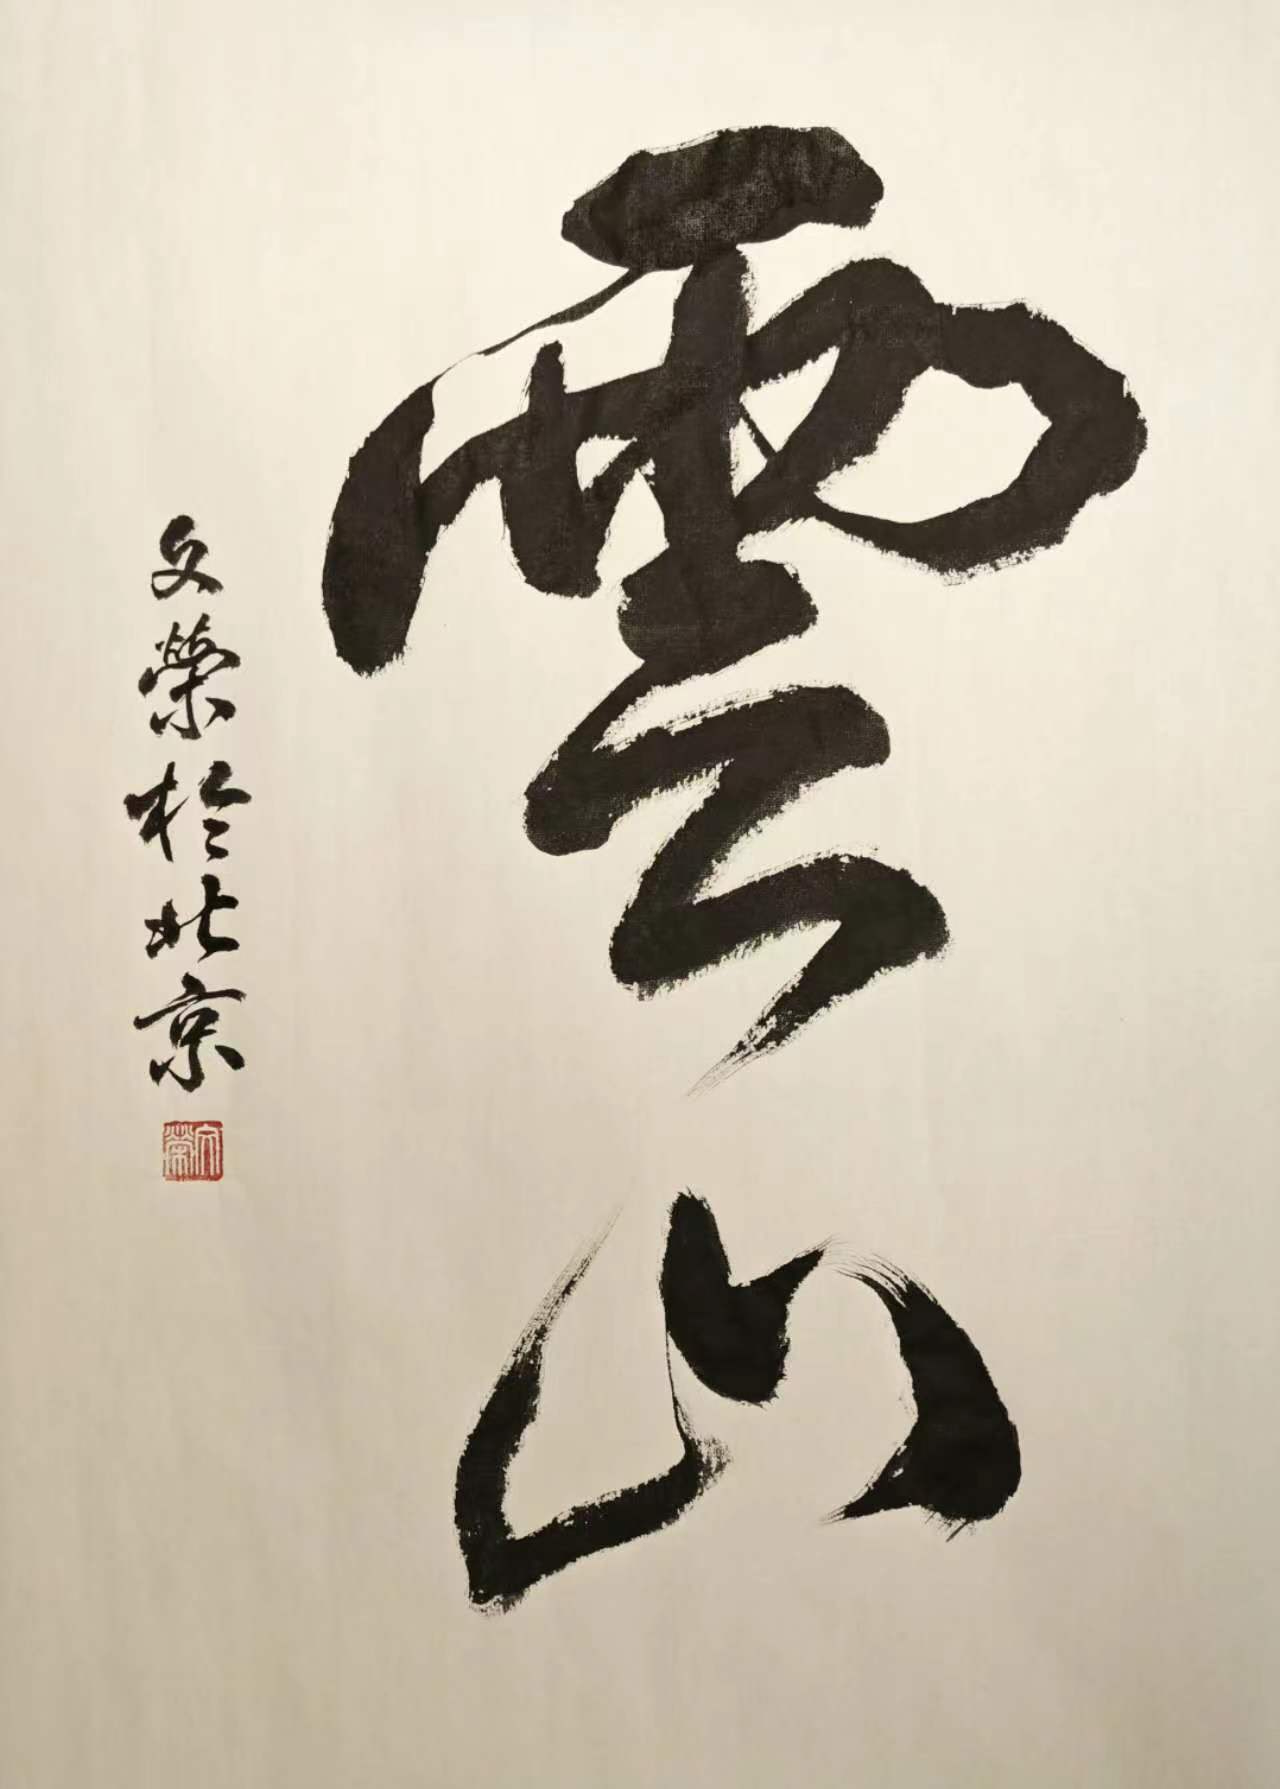 雲山
文榮於北京
文榮